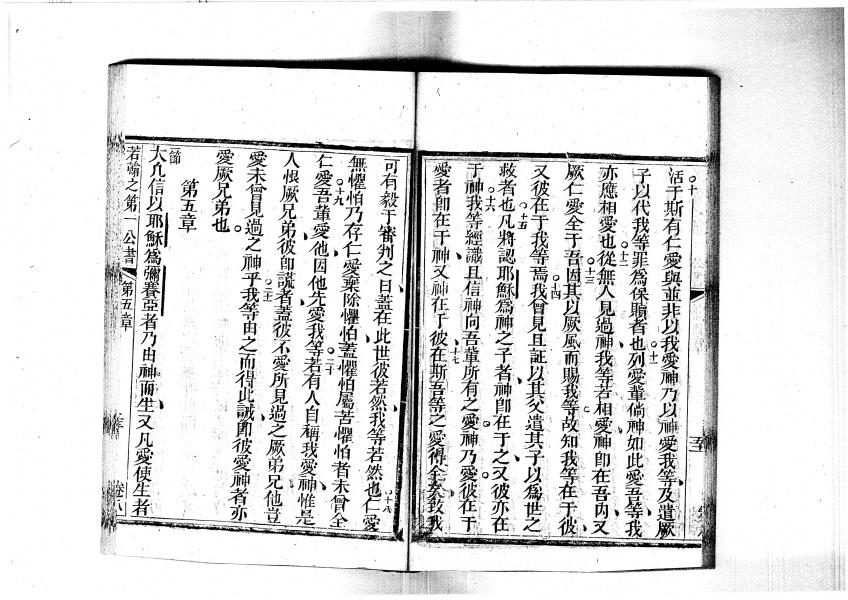 活于斯有仁愛與並非以我愛神乃以神愛我等及遣厥
子以代我等罪爲保贖者也列愛輩倘神如此愛吾等我
亦應相愛也從無人見過神我等若相愛神卽在吾內又
厥仁愛全于吾因其以厥風而賜我等故知我等在于彼
又彼在于我等焉我曾見且証以其父遣其子以爲世之
救者也凡將認耶穌爲神之子者神卽在于之又彼亦在
于神我等經識且信神向吾輩所有之愛神乃愛彼在于
愛者卽在于神又神在于彼在斯吾等之愛得全矣致我
可有毅于審判之日蓋在此世彼若然我等若然也仁愛
無懼怕乃存仁愛棄除懼怕蓋懼怕屬苦懼怕者未曾全
仁愛吾輩愛他因他先愛我等若有人自稱我愛神惟是
人恨厥兄弟彼卽謊者蓋彼不愛所見過之厥弟兄他豈
愛未曾見過之神乎我等由之而得此誡卽彼愛神者亦
愛厥兄弟也
第五章
節大凡信以耶穌爲彌賽亞者乃由神而生又凡愛使生者
若翰之第一公書 第五章